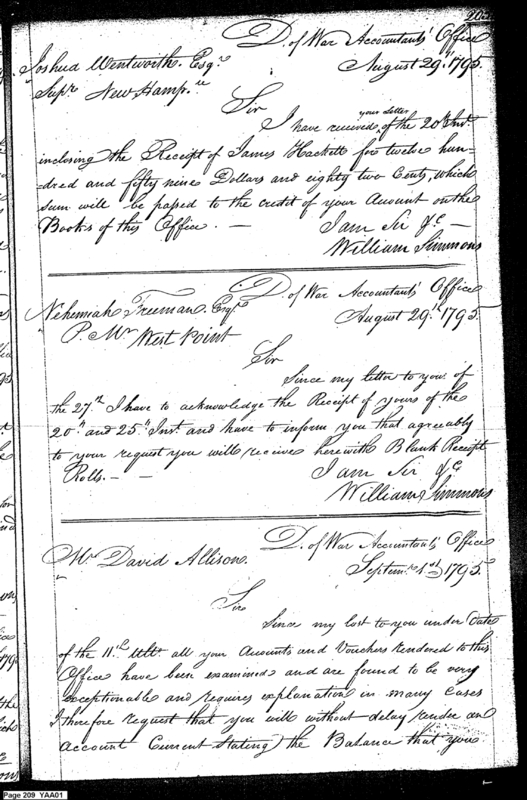 D. of War Accountants' Office
Joshua Wentworth Esqr. August 29th. 1795.
Supr. New Hamp.re
Sir
I have received your Letter of the 20th Inst.
inclosing the Receipt of James Hackett for twelve hun-
dred and fifty nine Dollars and eighty two Cents, which
sum will be passed to the credit of your Account on the
Books of this Office. —
I am Sir &c —
William Simmons
D. of War Accountants' Office
Nehemiah Freeman. Esqr. August 29th. 1795.
P. Mr. West Point
Sir
Since my letter to you of
the 27th. I have to acknowledge the Receipt of yours of the
20th and 25th Inst. and have to inform you that agreeably
to your request you will receive herewith Blank Receipt
Rolls. — —
I am Sir &c
William Simmons
D. of War Accountants' Office
Mr. David Allison. Septemr. 1st 1795
Sir
Since my last to you under Date
of the 11th. Ult. all your Accounts and Vouchers rendered to this
Office have been examined and are found to be very
exceptionable and requires explanation in many Cases
I therefore request that you will without delay render an
Account Current Stating the Balance that you
Page 209 YAA01